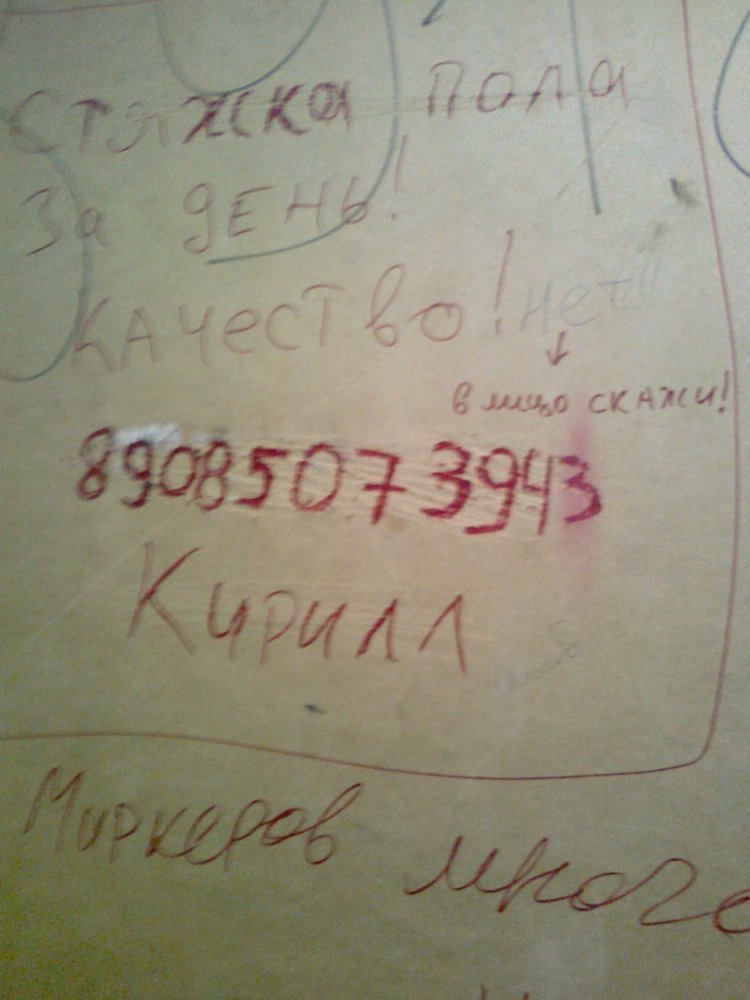 Стяжка пола
За день!
Качество! нет!!!
в лицо скажи!
89085073943
Кирилл
Маркеров много